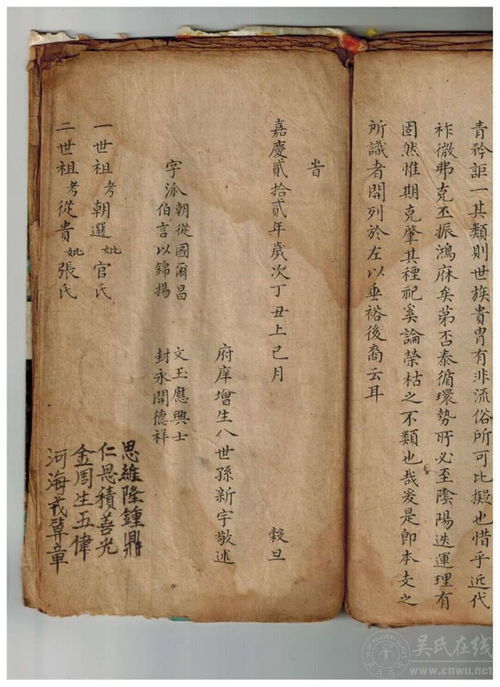 青矜詎一其類則世族貴冑有非流俗所可比擬也惜乎近代
祚微弗克丕振鴻庥矣第否泰循環勢所必至陰陽迭運理有
固然惟期克肇其種祀奚論榮枯之不類也哉爰是即本支之
所識者開列於左以垂裕後裔云耳
旹
嘉慶貳拾貳年歲次丁丑上巳月 穀旦
府庠增生八世孫新宇敬述
字派 朝從國爾昌 文玉應興士
伯言以錦揚 封永開德祥
一世祖考朝選妣官氏
二世祖考從貴妣張氏
思維隆鍾鼎
仁恩積善光
金周生五偉
河海戎算章
吴氏在线
www.cnwu.net